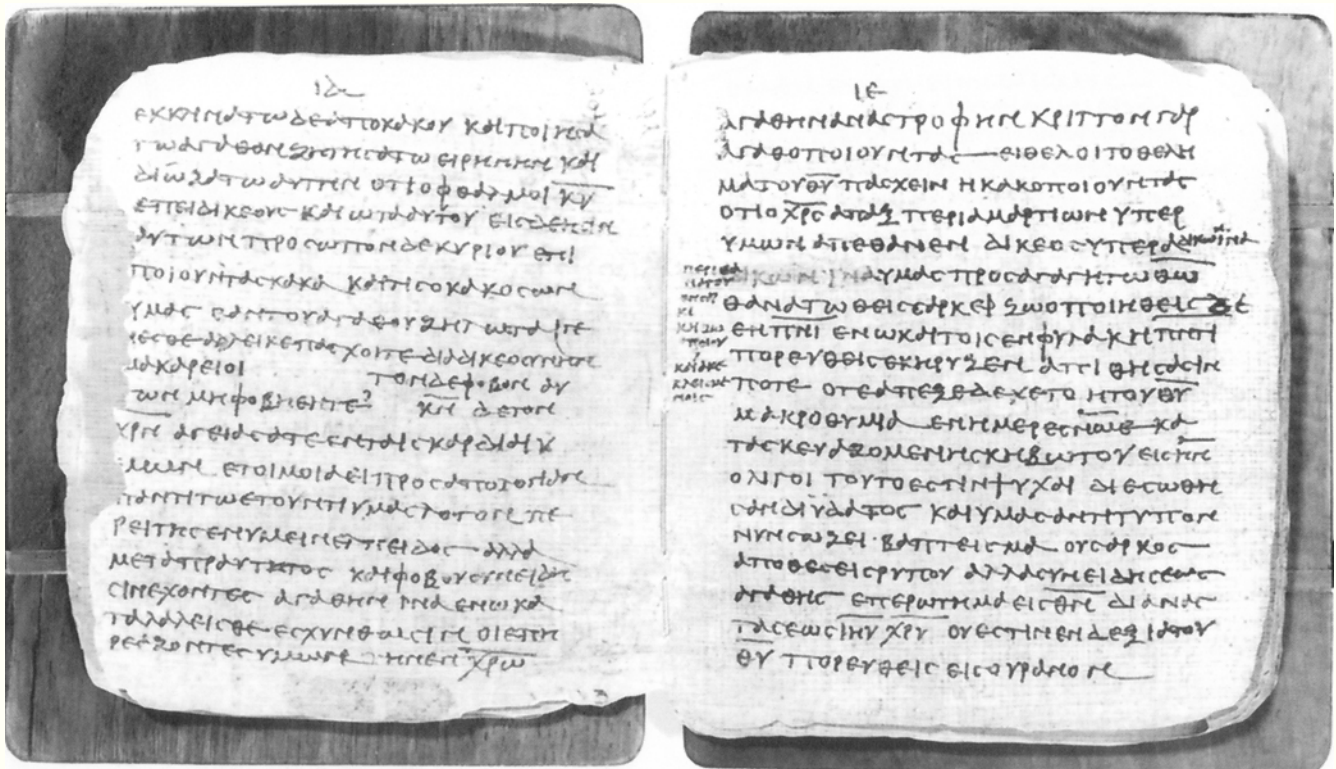 ΙΔ
εκκλινατωδεαποκακου καιποιησα
τωαγαθον ζητησατω ειρηνην και
διωξατωαυτην οτιοφθαλμοι κυ
επειδικεους καιωτααυτου εισδεησιν
αυτων προσωπονδεκυριου επι
ποιουντασκακα καιτισοκακοσων
υμας εαντουαγαθουζηλωταιγε
νεσθεαλλεικεπασχοιτεδιαδικεοσυνην
μακαρειοι τονδεφοβον αυ
των μηφοβηθητε κν δετον
χρν αγειασατεενταισκαρδιαισυ
μων ετοιμοιαειπροσαπολογιαν
παντιτωετουντιυμασλογον πε
ρειτησενυμεινελπειδος αλλα
μεταπραυτητος καιφοβουσυνειδη
σινεχοντες αγαθην ιναενωκα
ταλαλεισθε εσχυνθωσιν οιεπη
ρεαζοντεσυμων τηνεν χρω
ΙΕ
αγαθηναναστροφην κριττονγαρ
αγαθοποιουντας ειθελοιτοθελη
ματουθυ πασχειν ηκακοποιουντας
οτιοχρς απαξ περιαμαρτιων υπερ
υμων απεθανεν δικεοσυπερ αδικωνινα
υμασπροσαγαγητωθω
θανατωθεισσαρκει ζωοποιηθεις δε
ενπνι ενωκαιτοισενφυλακηπνσι
πορευθεισεκηρυξεν απιθησασιν
ποτε οτεαπεξεδεχετο ητουθυ
μακροθυμια ενημερεσνωε κα
τασκευαζομενησκηβωτου εισην
ολιγοι τουτοεστινψυχαι διεσωθη
σανδιυδατος καιυμασαντιτυπον
νυνσωζει βαπτεισμα ουσαρκος
αποθεσεισρυπου αλλασυνειδησεως
αγαθης επερωτημαεισθν διανας
τασεωσιηυ χρυ ουεστινενδεξιατου
θυ πορευθεις εισουρανον